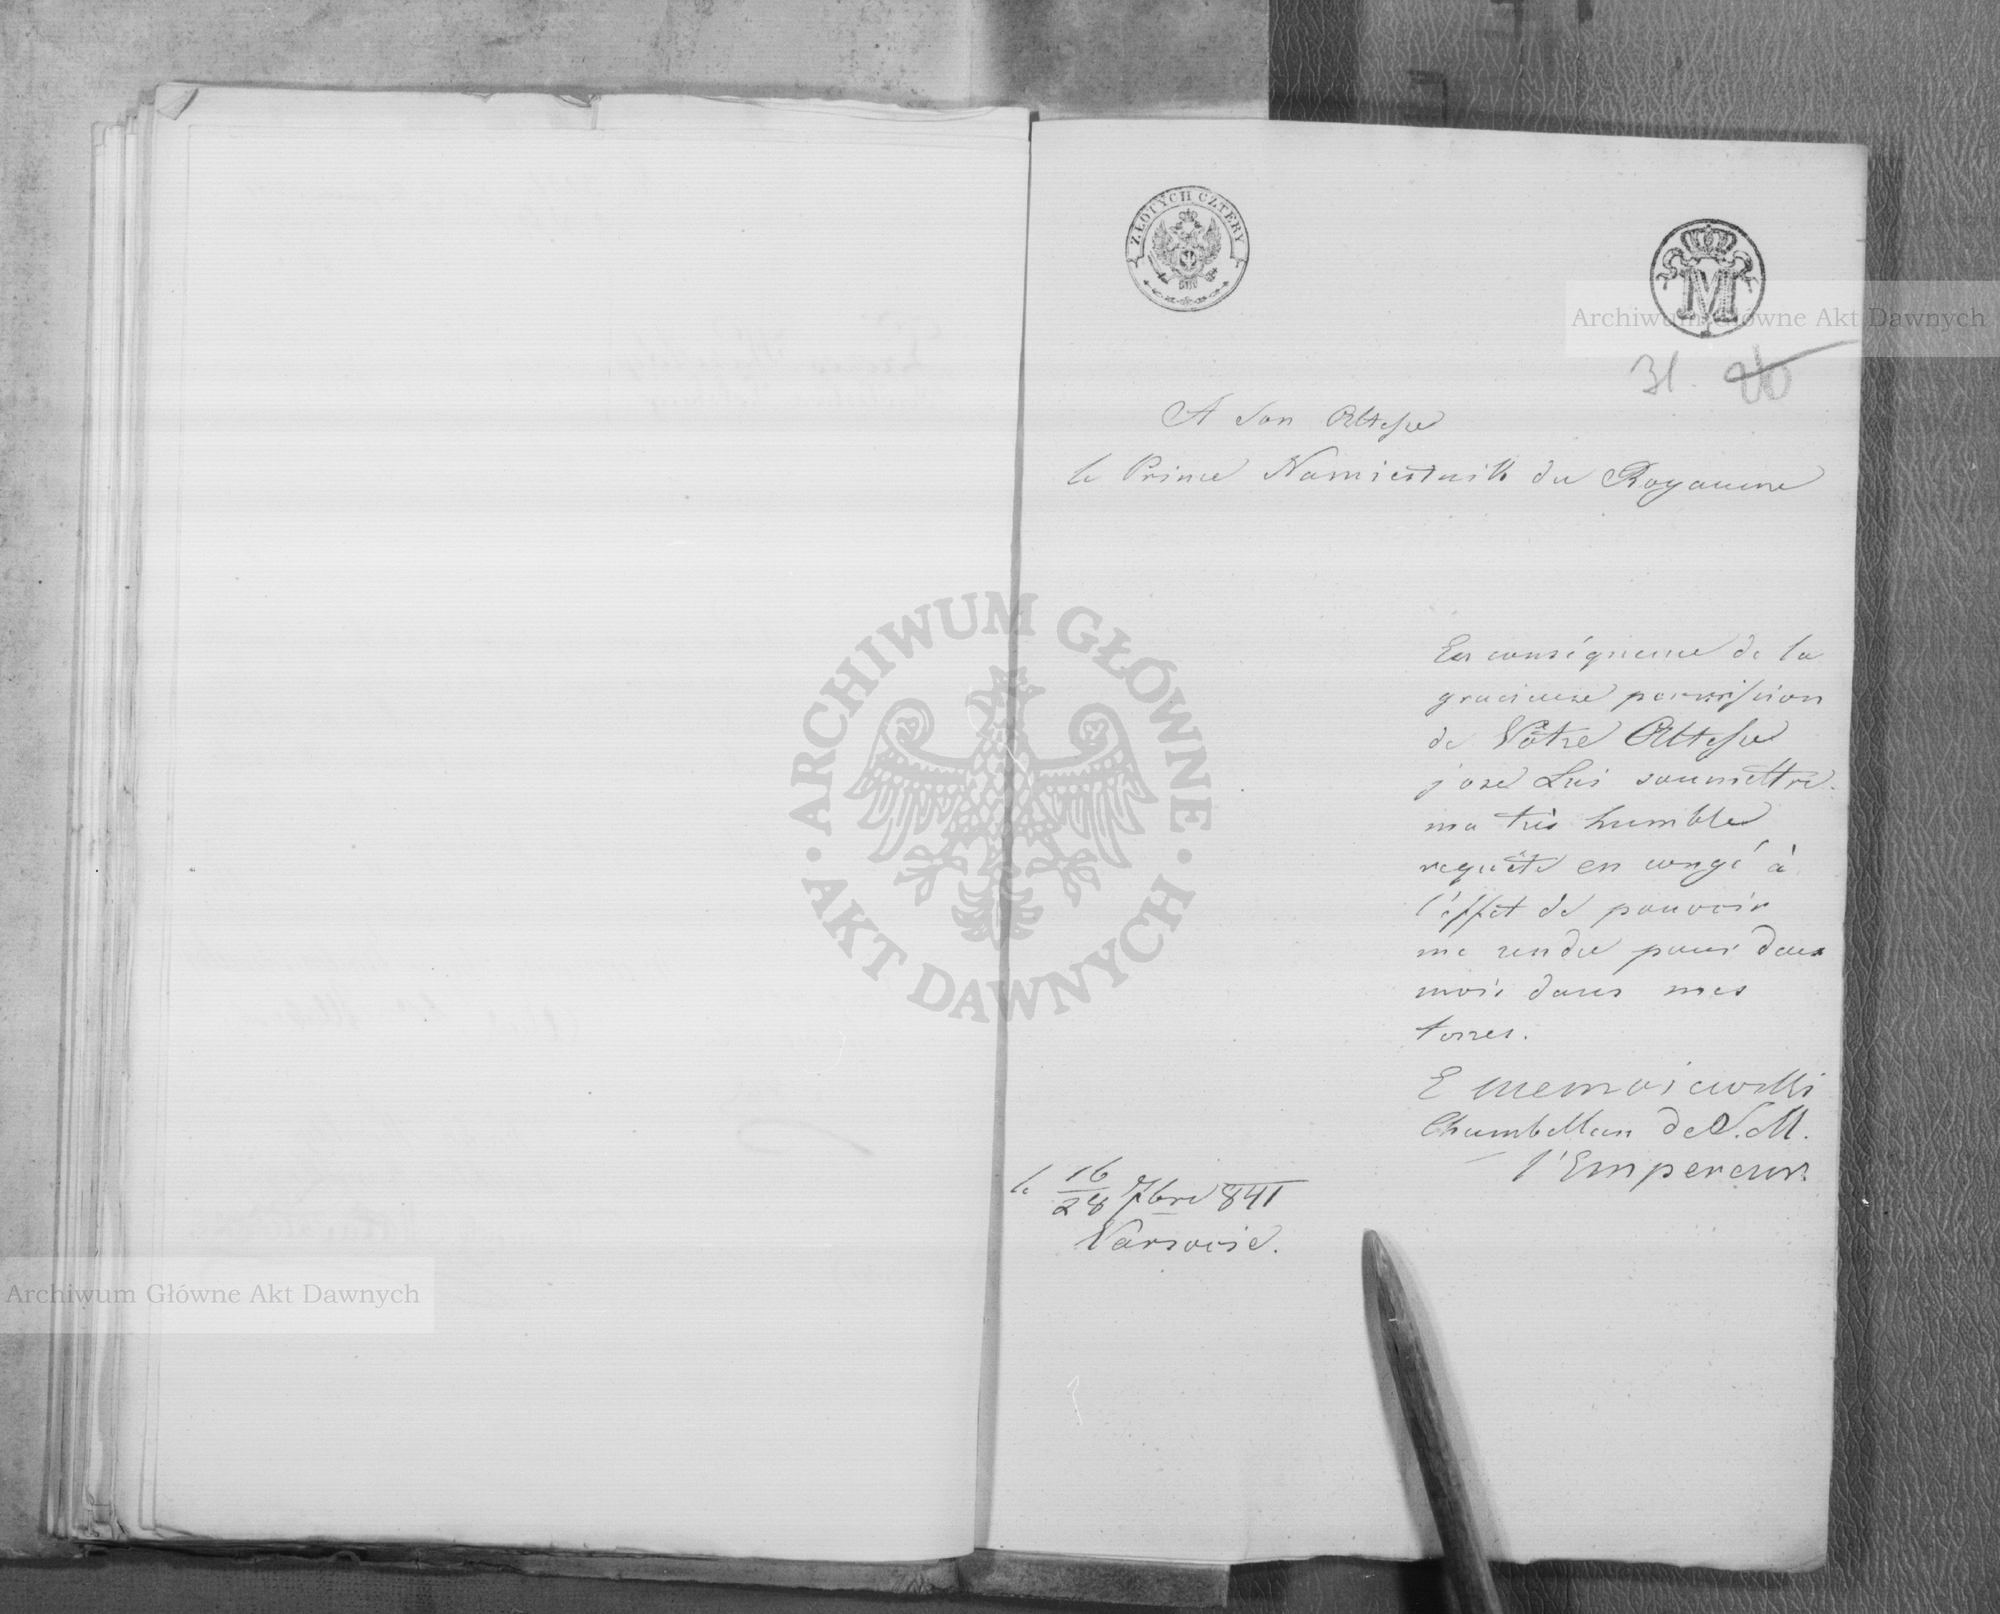 ZŁOTYCH CZTERY
M
Archiwum Główne Akt Dawnych
31. 26
A Son Altesse
le Prince Namiestnik du Royaume
En conséquence de la
gracieuse permission
de Vôtre Altesse
j'ose Lui soumettre
ma très humble
requête en congé à
l'effet de pouvoir
me rendre pour deux
mois dans mes
terres.
E
Chambellan de S. M.
l'Empereur.
le 16/28 7bre 841
Varsovie.
ARCHIWUM GŁÓWNE
AKT DAWNYCH
Archiwum Główne Akt Dawnych